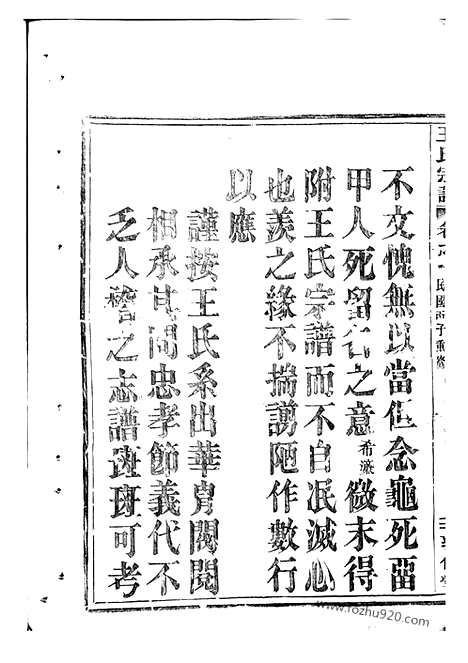 王氏宗譜 民國丙子重修
不文愧無以當但念龜死留
甲人死留名之意希濂微末得
附王氏宗譜而不自泯滅心
也羨之緣不揣謭陋作數行
以應
謹按王氏系出華胄閥閱
相承其間忠孝節義代不
乏人譜之志譜斑斑可考
www.fozhu920.com